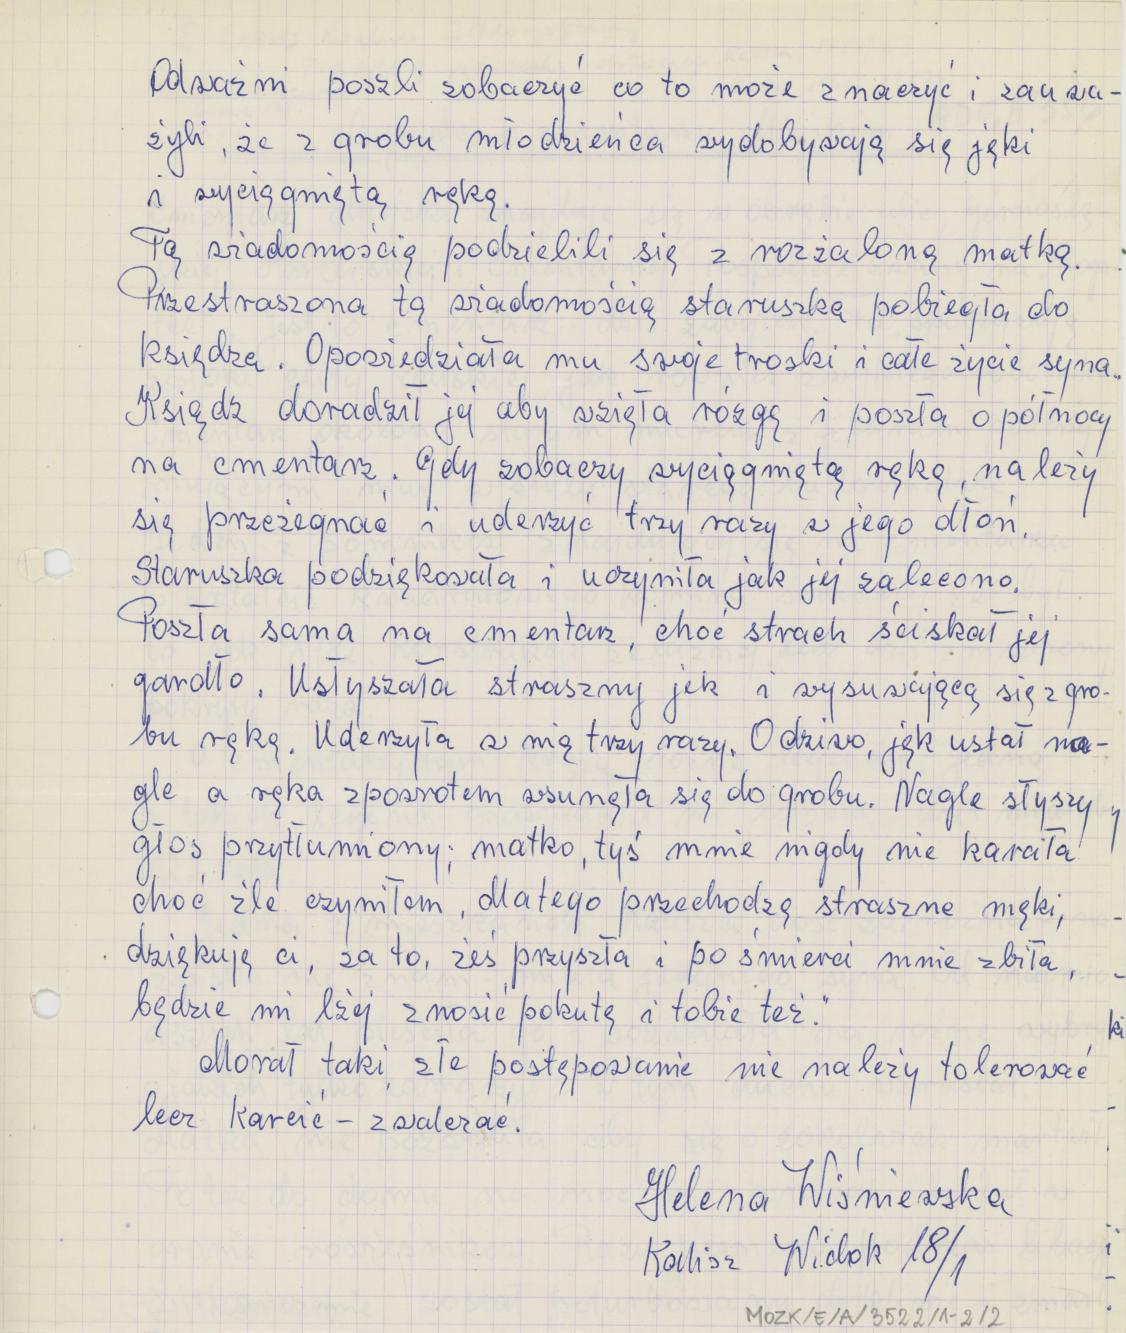 Odważni poszli zobaczyć co to może znaczyć i zauwa-
żyli, że z grobu młodzieńca wydobywają się jęki
i wyciągniętą ręką.
Tą wiadomością podzielili się z rozżaloną matką.
Przestraszona tą wiadomością staruszką pobiegła do
księdza. Opowiedziała mu swoje troski i całe życie syna.
Ksiądz doradził jej aby wzięła rózgę i poszła o północy
na cmentarz. Gdy zobaczy wyciągniętą ręką, należy
się przeżegnać i uderzyć trzy razy w jego dłoń.
Staruszka podziękowała i uczyniła jak jej zalecono.
Poszła sama na cmentarz, choć strach ściskał jej
gardło. Usłyszała straszny jęk i wysuwającą się z gro-
bu ręką. Uderzyła w nią trzy razy. O dziwo, jęk ustał na-
gle a ręka zpowrotem wsunęła się do grobu. Nagle słyszy
głos przytłumiony; matko, tyś mnie nigdy nie karała
choć źle czyniłem, dlatego przechodzą straszne męki,
dziękuję ci, za to, żeś przyszła i po śmierci mnie zbiła,
będzie mi lżej znosić pokutę i tobie też."
Morał taki, złe postępowanie nie należy tolerować
lecz karcić - zwalczać.
Helena Wiśniewska
Kalisz Widok 18/1
MOZK/E/A/3522/1-2/2